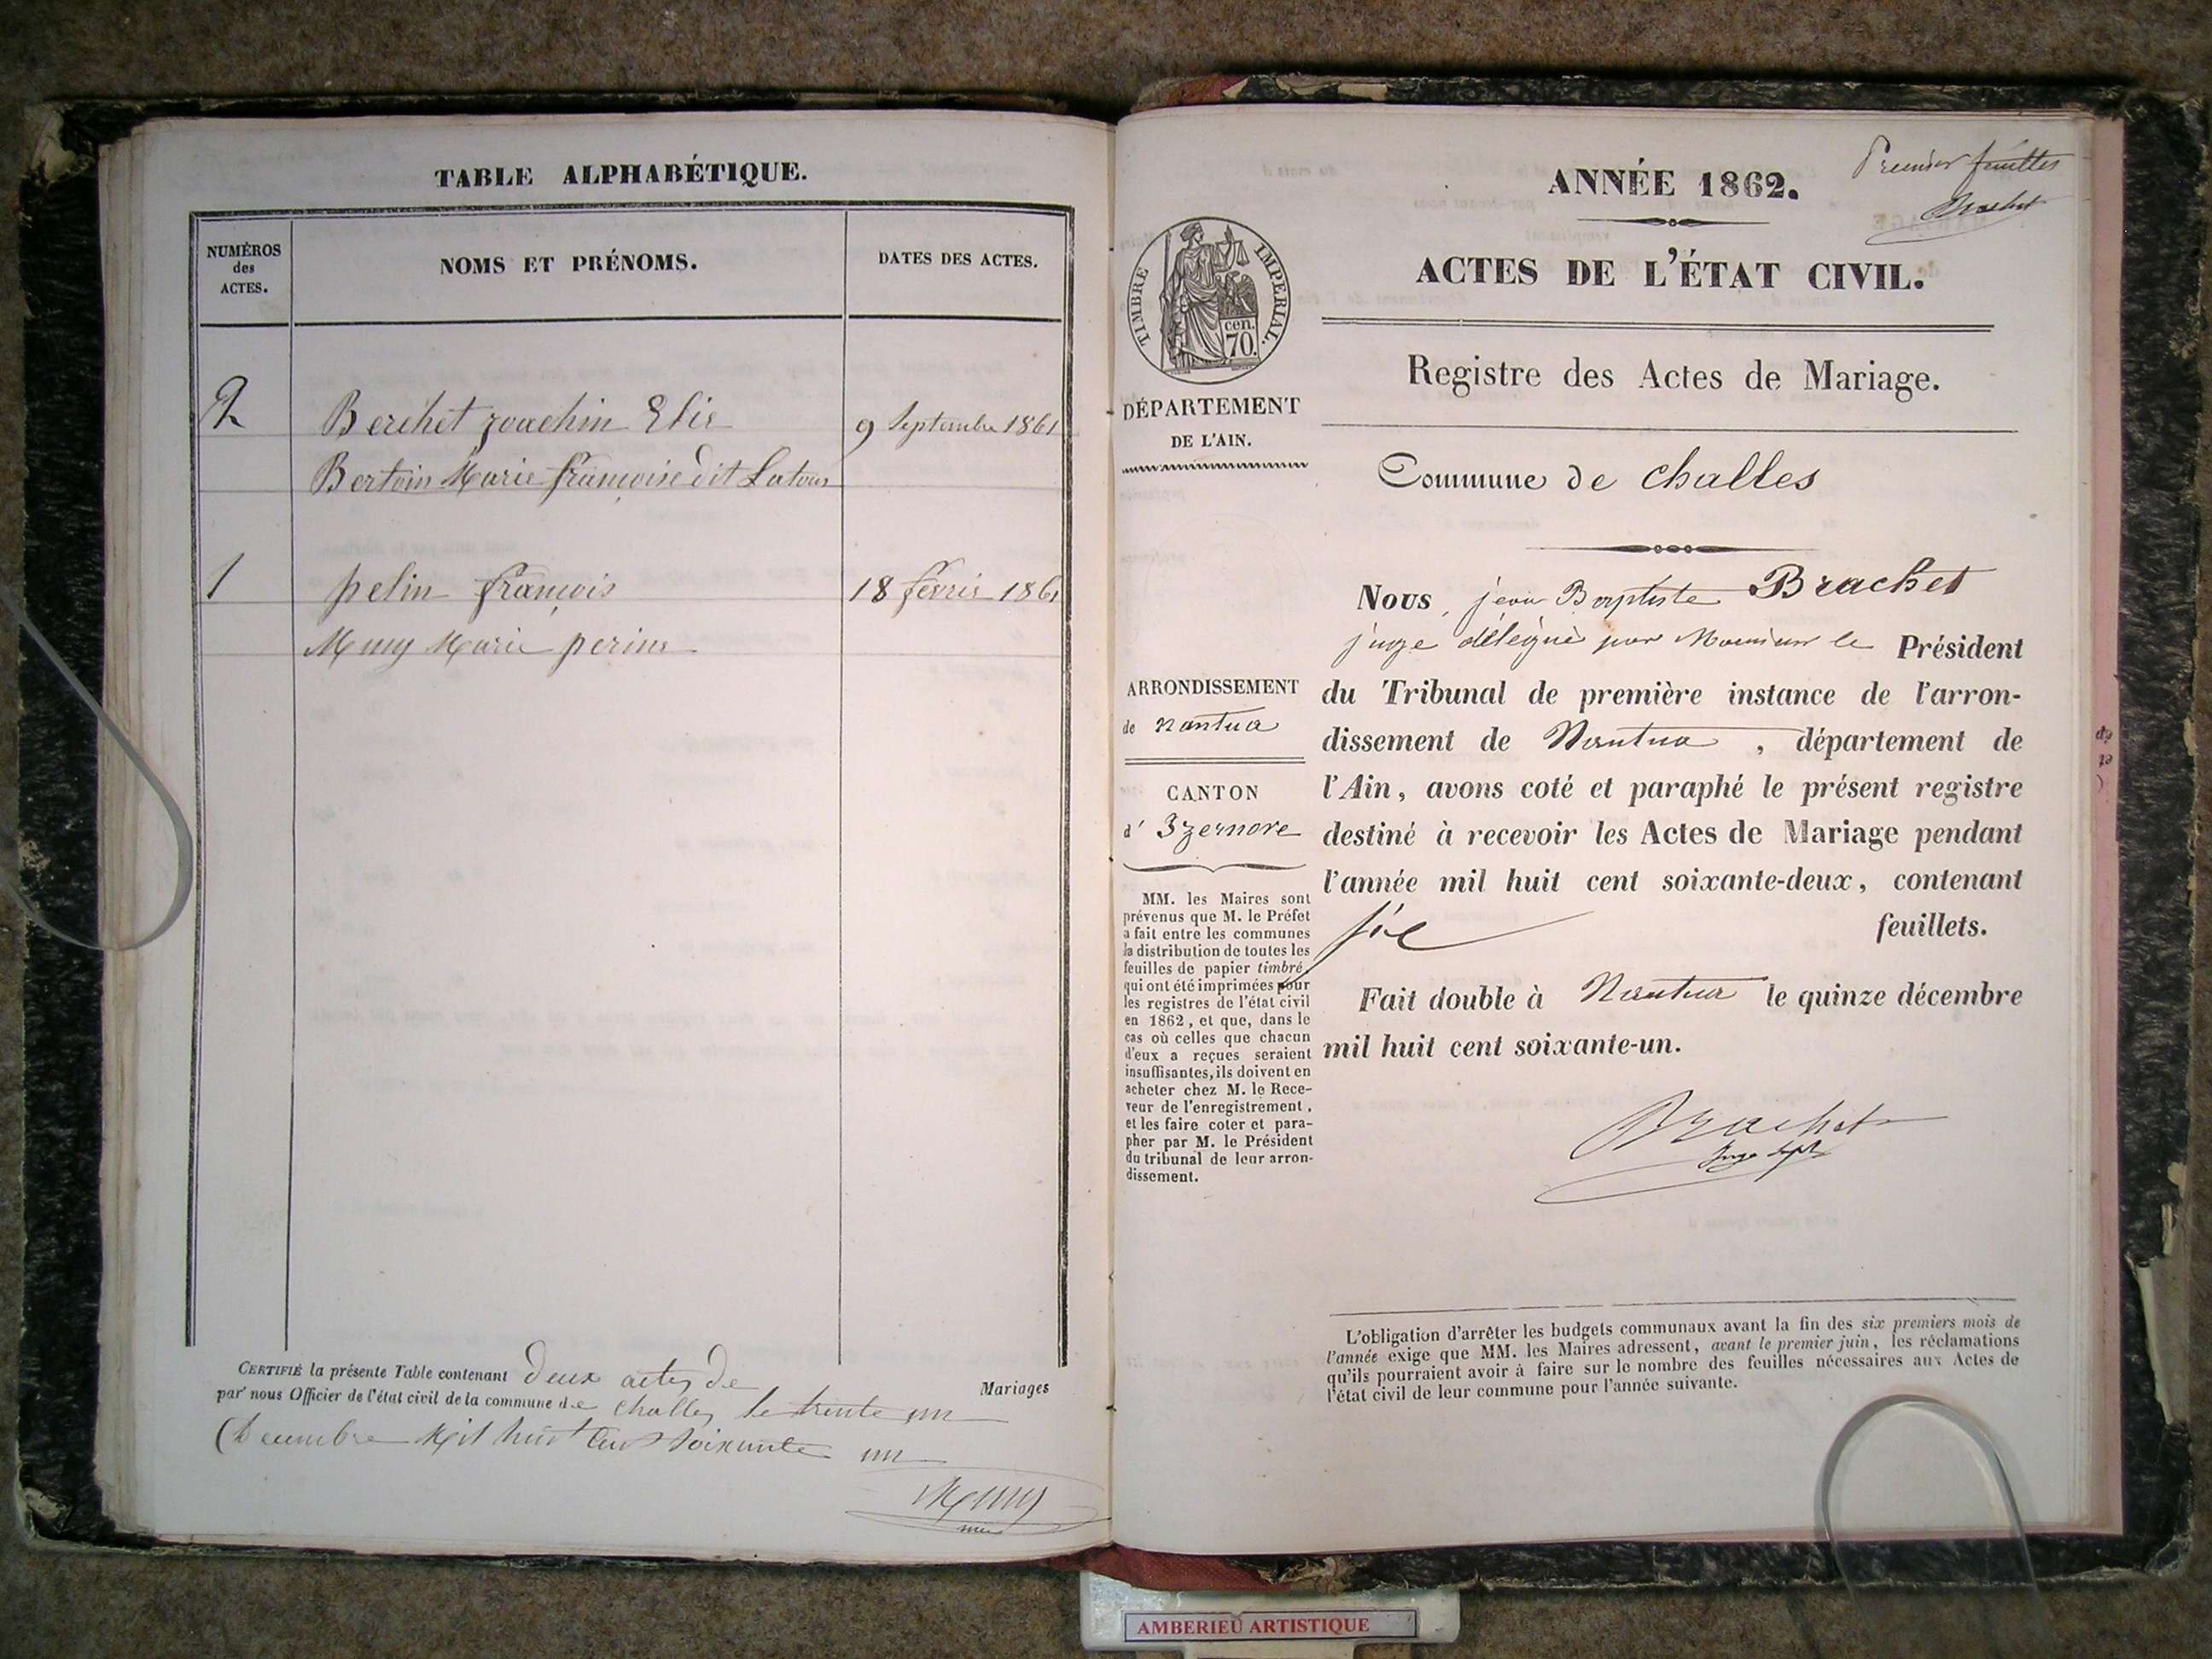 TABLE ALPHABÉTIQUE.
NUMÉROS
des
ACTES.
NOMS ET PRÉNOMS.
DATES DES ACTES.
2
Berchet joachin Elie
9 Septembre 1861
Bertoin Marie françoise dit Latour
1
pelin françois
18 février 1861
Muny Marie perine
CERTIFIÉ la présente Table contenant deux actes de
Mariages
par nous Officier de l'état civil de la commune de Challes le trente un
Décembre Mil huit Cent Soixante un
ANNÉE 1862.
Premier feuillet
Brachet
TIMBRE IMPERIAL.
cen.
70.
ACTES DE L'ÉTAT CIVIL.
Registre des Actes de Mariage.
DÉPARTEMENT
DE L'AIN.
Commune de Challes
ARRONDISSEMENT
de Nantua
CANTON
d' Izernore
MM. les Maires sont
prévenus que M. le Préfet
a fait entre les communes
la distribution de toutes les
feuilles de papier timbré,
qui ont été imprimées pour
les registres de l'état civil
en 1862, et que, dans le
cas où celles que chacun
d'eux a reçues seraient
insuffisantes, ils doivent en
acheter chez M. le Rece-
veur de l'enregistrement,
et les faire coter et para-
pher par M. le Président
du tribunal de leur arron-
dissement.
Nous, jean Baptiste Brachet
juge délégué par Monsieur le Président
du Tribunal de première instance de l'arron-
dissement de Nantua, département de
l'Ain, avons coté et paraphé le présent registre
destiné à recevoir les Actes de Mariage pendant
l'année mil huit cent soixante-deux, contenant
six feuillets.
Fait double à Nantua le quinze décembre
mil huit cent soixante-un.
Brachet
L'obligation d'arrêter les budgets communaux avant la fin des six premiers mois de
l'année exige que MM. les Maires adressent, avant le premier juin, les réclamations
qu'ils pourraient avoir à faire sur le nombre des feuilles nécessaires aux Actes de
l'état civil de leur commune pour l'année suivante.
AMBERIEU ARTISTIQUE